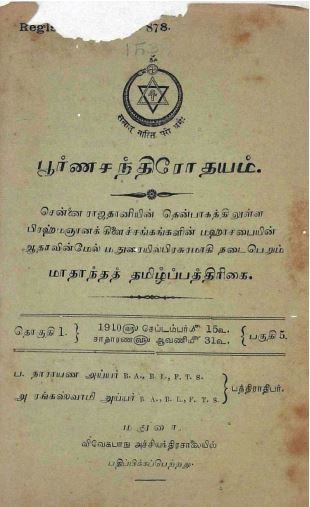 Regis 878.
பூர்ணசந்திரோதயம்.
சென்னை ராஜதானியின் தென்பாகத்திலுள்ள
பிரஹ்மஞானக் கிளைச்சங்கங்களின் மஹாசபையின்
ஆதரவின்மேல் மதுரையில்பிரசுரமாகி நடைபெறும்
மாதாந்தத் தமிழ்ப்பத்திரிகை.
தொகுதி 1. } 1910௵ செப்டம்பர்௴ 15௳. { பகுதி 5.
சாதாரண௵ ஆவணி௴ 31௳.
ப. நாராயண அய்யர் B. A., B. L., F. T. S.
அ ரங்கஸ்வாமி அய்யர் B. A., B. L., F. T. S. } பத்திராதிபர்.
மதுரை,
விவேகபாநு அச்சியந்திரசாலையில்
பதிப்பிக்கப்பெற்றது.